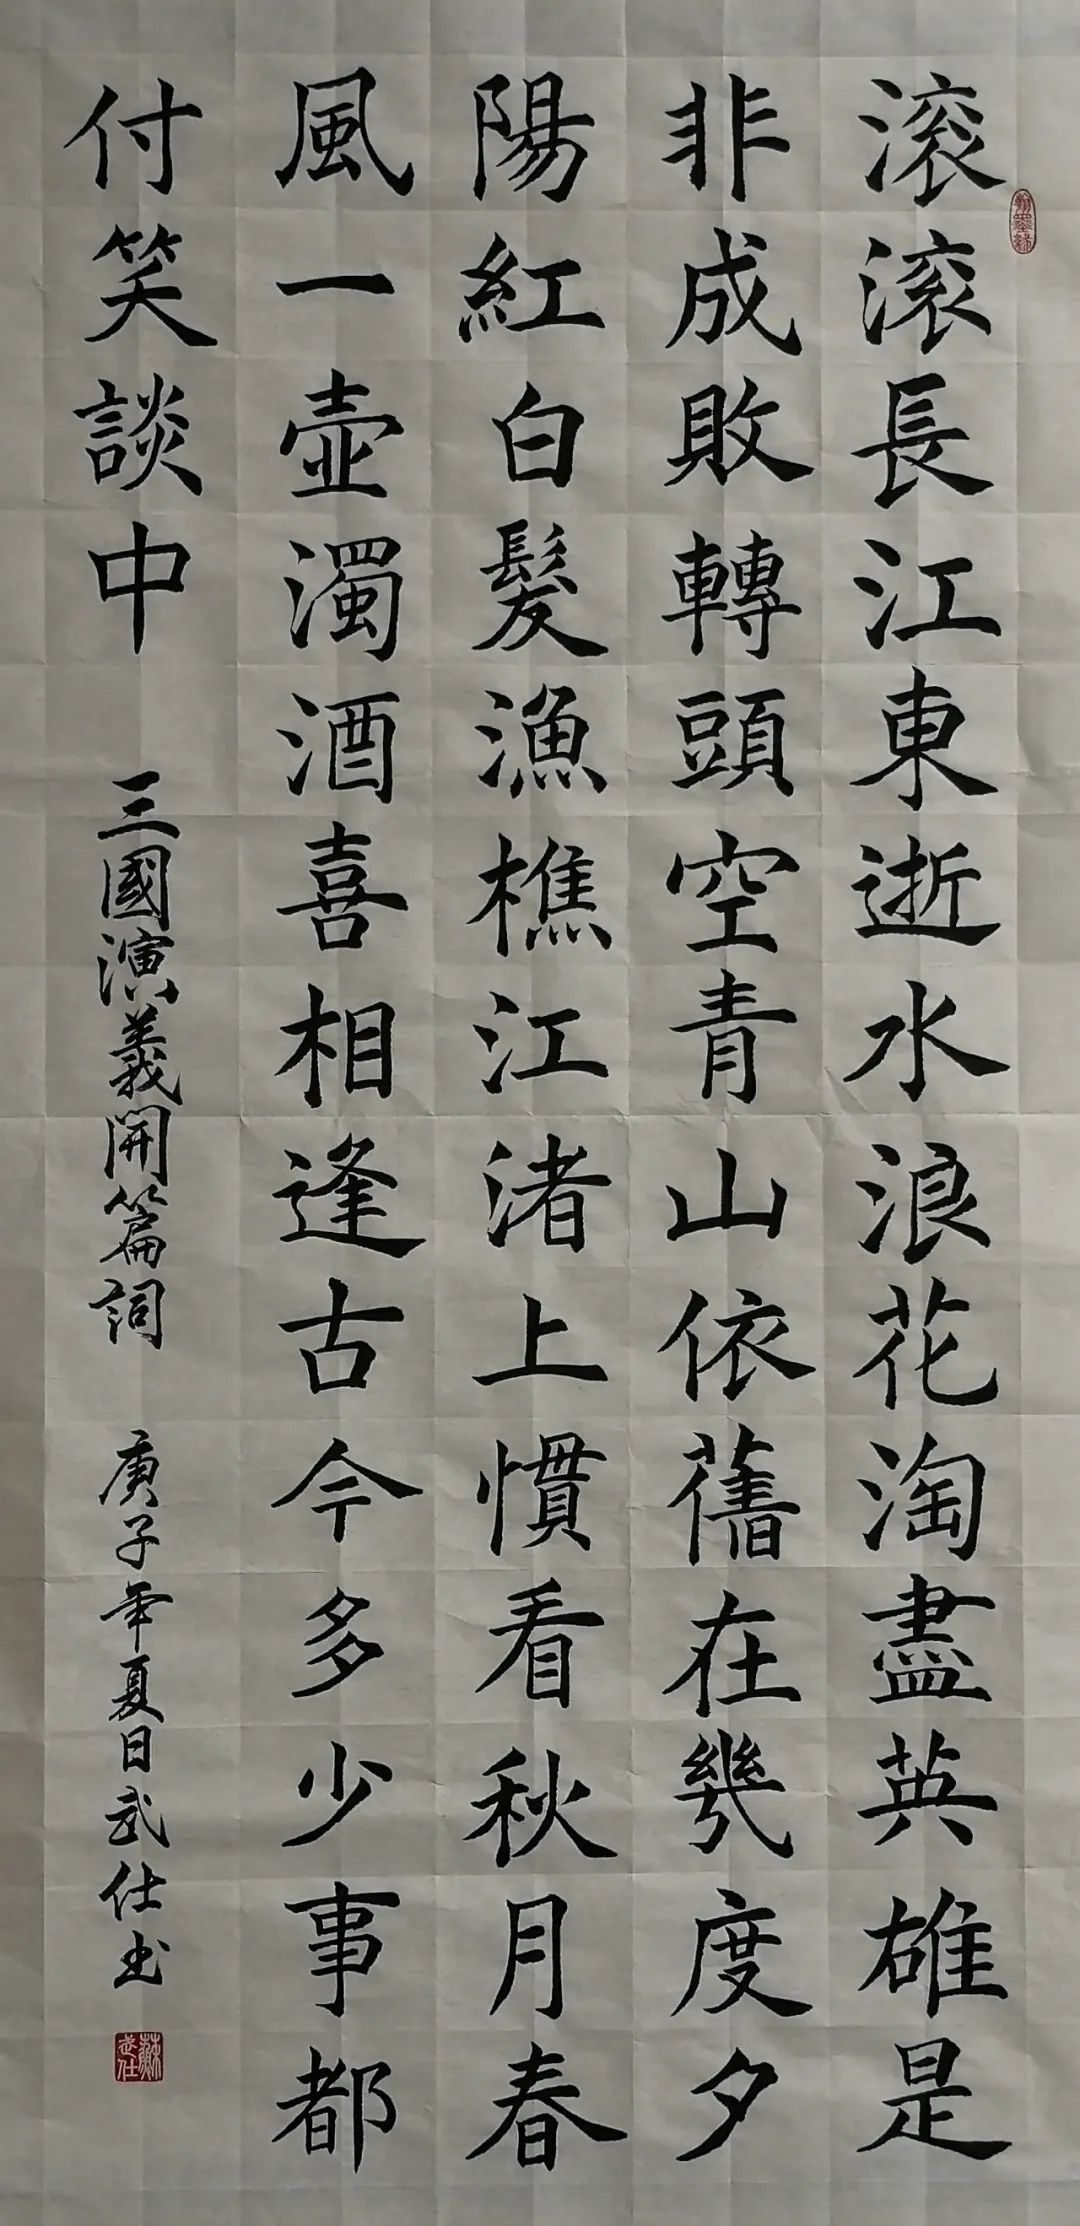 滚滚長江東逝水浪花淘盡英雄是
非成敗轉頭空青山依舊在幾度夕
陽紅白髮漁樵江渚上慣看秋月春
風一壺濁酒喜相逢古今多少事都
付笑談中
三國演義開篇詞
庚子年夏日武仕书
翰墨緣
蘇武仕